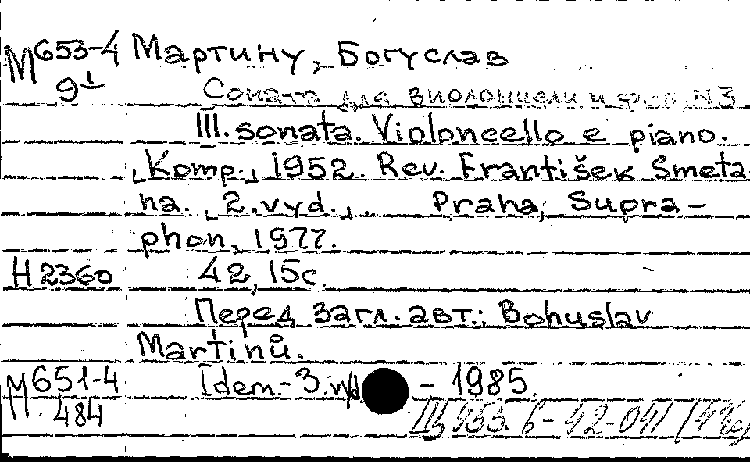 М 653-4 Мартину, Богуслав
9¹
Соната для виолончели и ф-но N3
III. sonata. Violoncello e piano.
[Komp.] 1952. Rev. František Smeta-
na. [2. vyd.] Praha, Supra-
phon, 1977.
Н 2360 42, 15с.
Перед загл. авт.: Bohuslav
Martinů.
М 651-4 Idem.-3. vyd - 1985.
484
Щ 953. 6-42-041